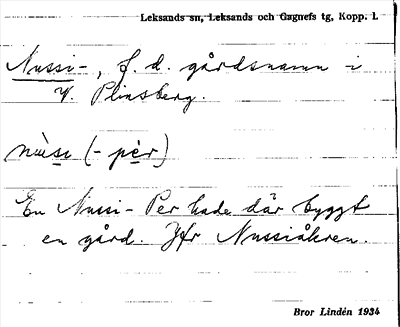 Leksands sn, Leksands och Gagnefs tg, Kopp. l.
Nussi-, f. d. gårdsnamn i
V. Plintsberg.
nùsi (- pèr)
En Nussi-Per hade där byggt
en gård. Jfr Nussiåkren.
Bror Lindén 1934